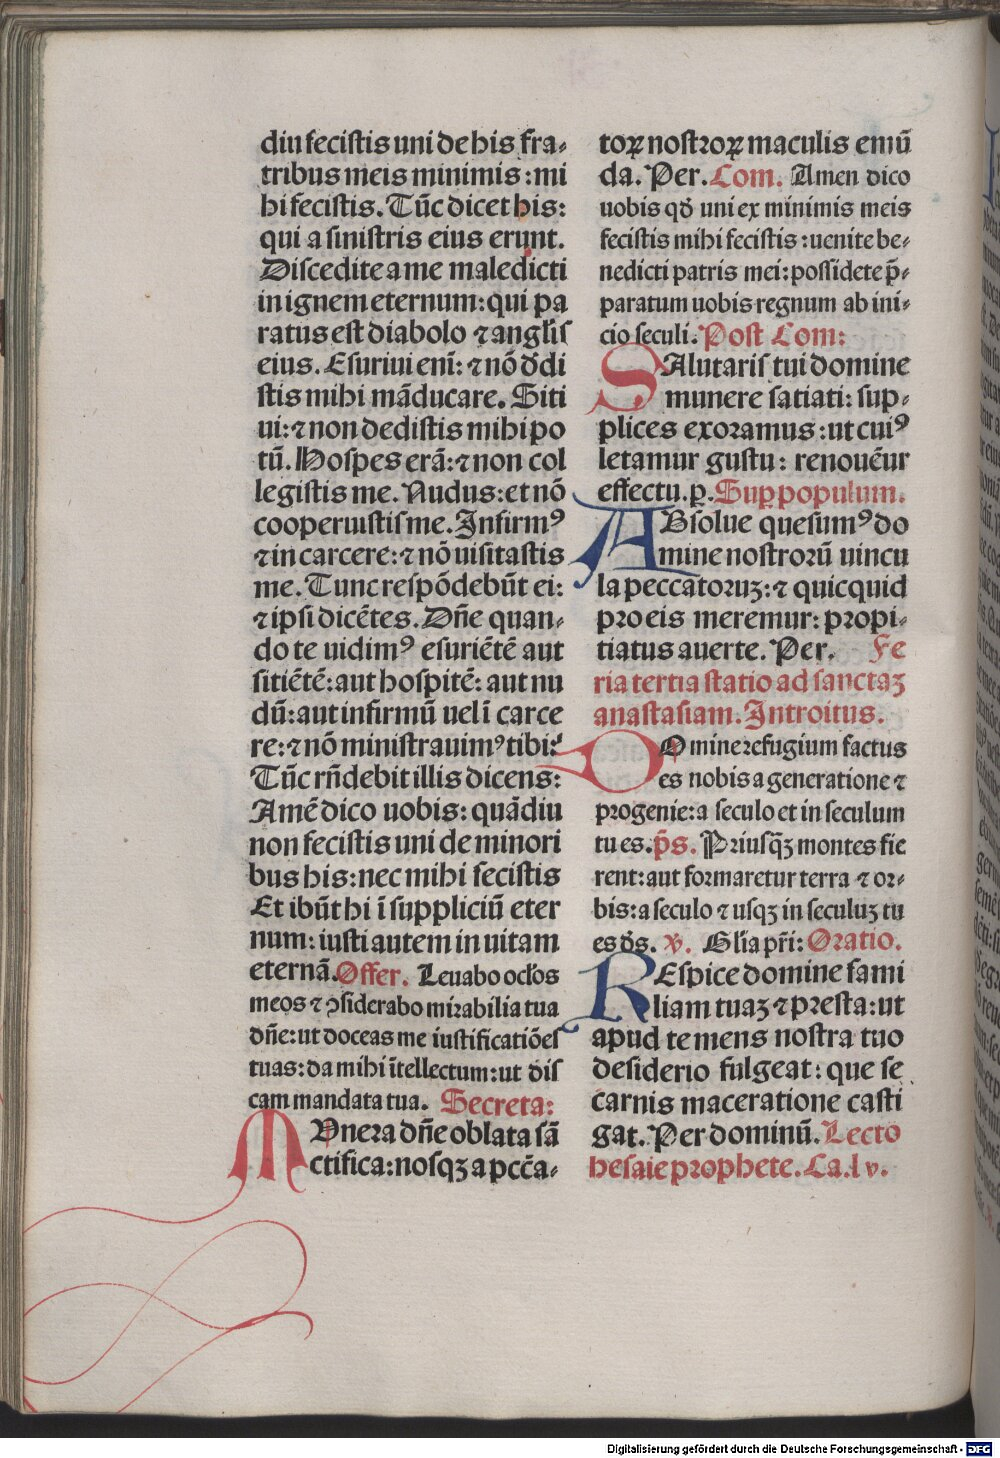 diu fecistis uni de his fra-
tribus meis minimis: mi
hi fecistis. Tūc dicet his:
qui a sinistris eius erunt.
Discedite a me maledicti
in ignem eternum: qui pa
ratus est diabolo ⁊ angl'is
eius. Esuriui eni̅: ⁊ nō ddi
stis mihi māducare. Siti
ui: ⁊ non dedistis mihi po
tū. Hospes erā: ⁊ non col
legistis me. Nudus: et nō
cooperuistis me. Infirmꝰ
⁊ in carcere: ⁊ nō uisitastis
me. Tunc respōdebūt ei:
⁊ ipsi dicētes. Dn̄e quan-
do te uidimꝰ esuriētē aut
sitiētē: aut hospitē: aut nu
dū: aut infirmū uel ī carce
re: ⁊ nō ministrauimꝰ tibi:
Tūc rn̄debit illis dicens:
Amē dico uobis: quādiu
non fecistis uni de minori
bus his: nec mihi fecistis
Et ibūt hi ī suppliciū eter
num: iusti autem in uitam
eternā. Offer. Leuabo ocl'os
meos ⁊ ꝯsiderabo mirabilia tua
dn̄e: ut doceas me iustificatiōes
tuas: da mihi ītellectum: ut dis
cam mandata tua. Secreta:
MVnera dn̄e oblata sā
ctifica: nosqꝫ a pcc̄a-
toꝝ nostroꝝ maculis emū
da. Per. Com. Amen dico
uobis qd̄ uni ex minimis meis
fecistis mihi fecistis: uenite be-
nedicti patris mei: possidete p̄-
paratum uobis regnum ab ini-
cio seculi. Post Com:
SAlutaris tui domine
munere satiati: sup-
plices exoramus: ut cuiꝰ
letamur gustu: renouēur
effectu. p̲. Sup populum.
ABsolue quesumꝰ do
mine nostrorū uincu
la peccatoruꝫ: ⁊ quicquid
pro eis meremur: propi-
tiatus auerte. Per. Fe
ria tertia statio ad sanctaꝫ
anastasiam. Introitus.
DOmine refugium factus
es nobis a generatione ⁊
progenie: a seculo et in seculum
tu es. p̄s. Priusqꝫ montes fie
rent: aut formaretur terra ⁊ or-
bis: a seculo ⁊ usqꝫ in seculuꝫ tu
es ds̄. v. Gl'ia pr̄i: Oratio.
REspice domine fami
liam tuaꝫ ⁊ presta: ut
apud te mens nostra tuo
desiderio fulgeat: que se
carnis maceratione casti
gat. Per dominū. Lectō
hesaie prophete. Ca. lv.
Digitalisierung gefördert durch die Deutsche Forschungsgemeinschaft - DFG